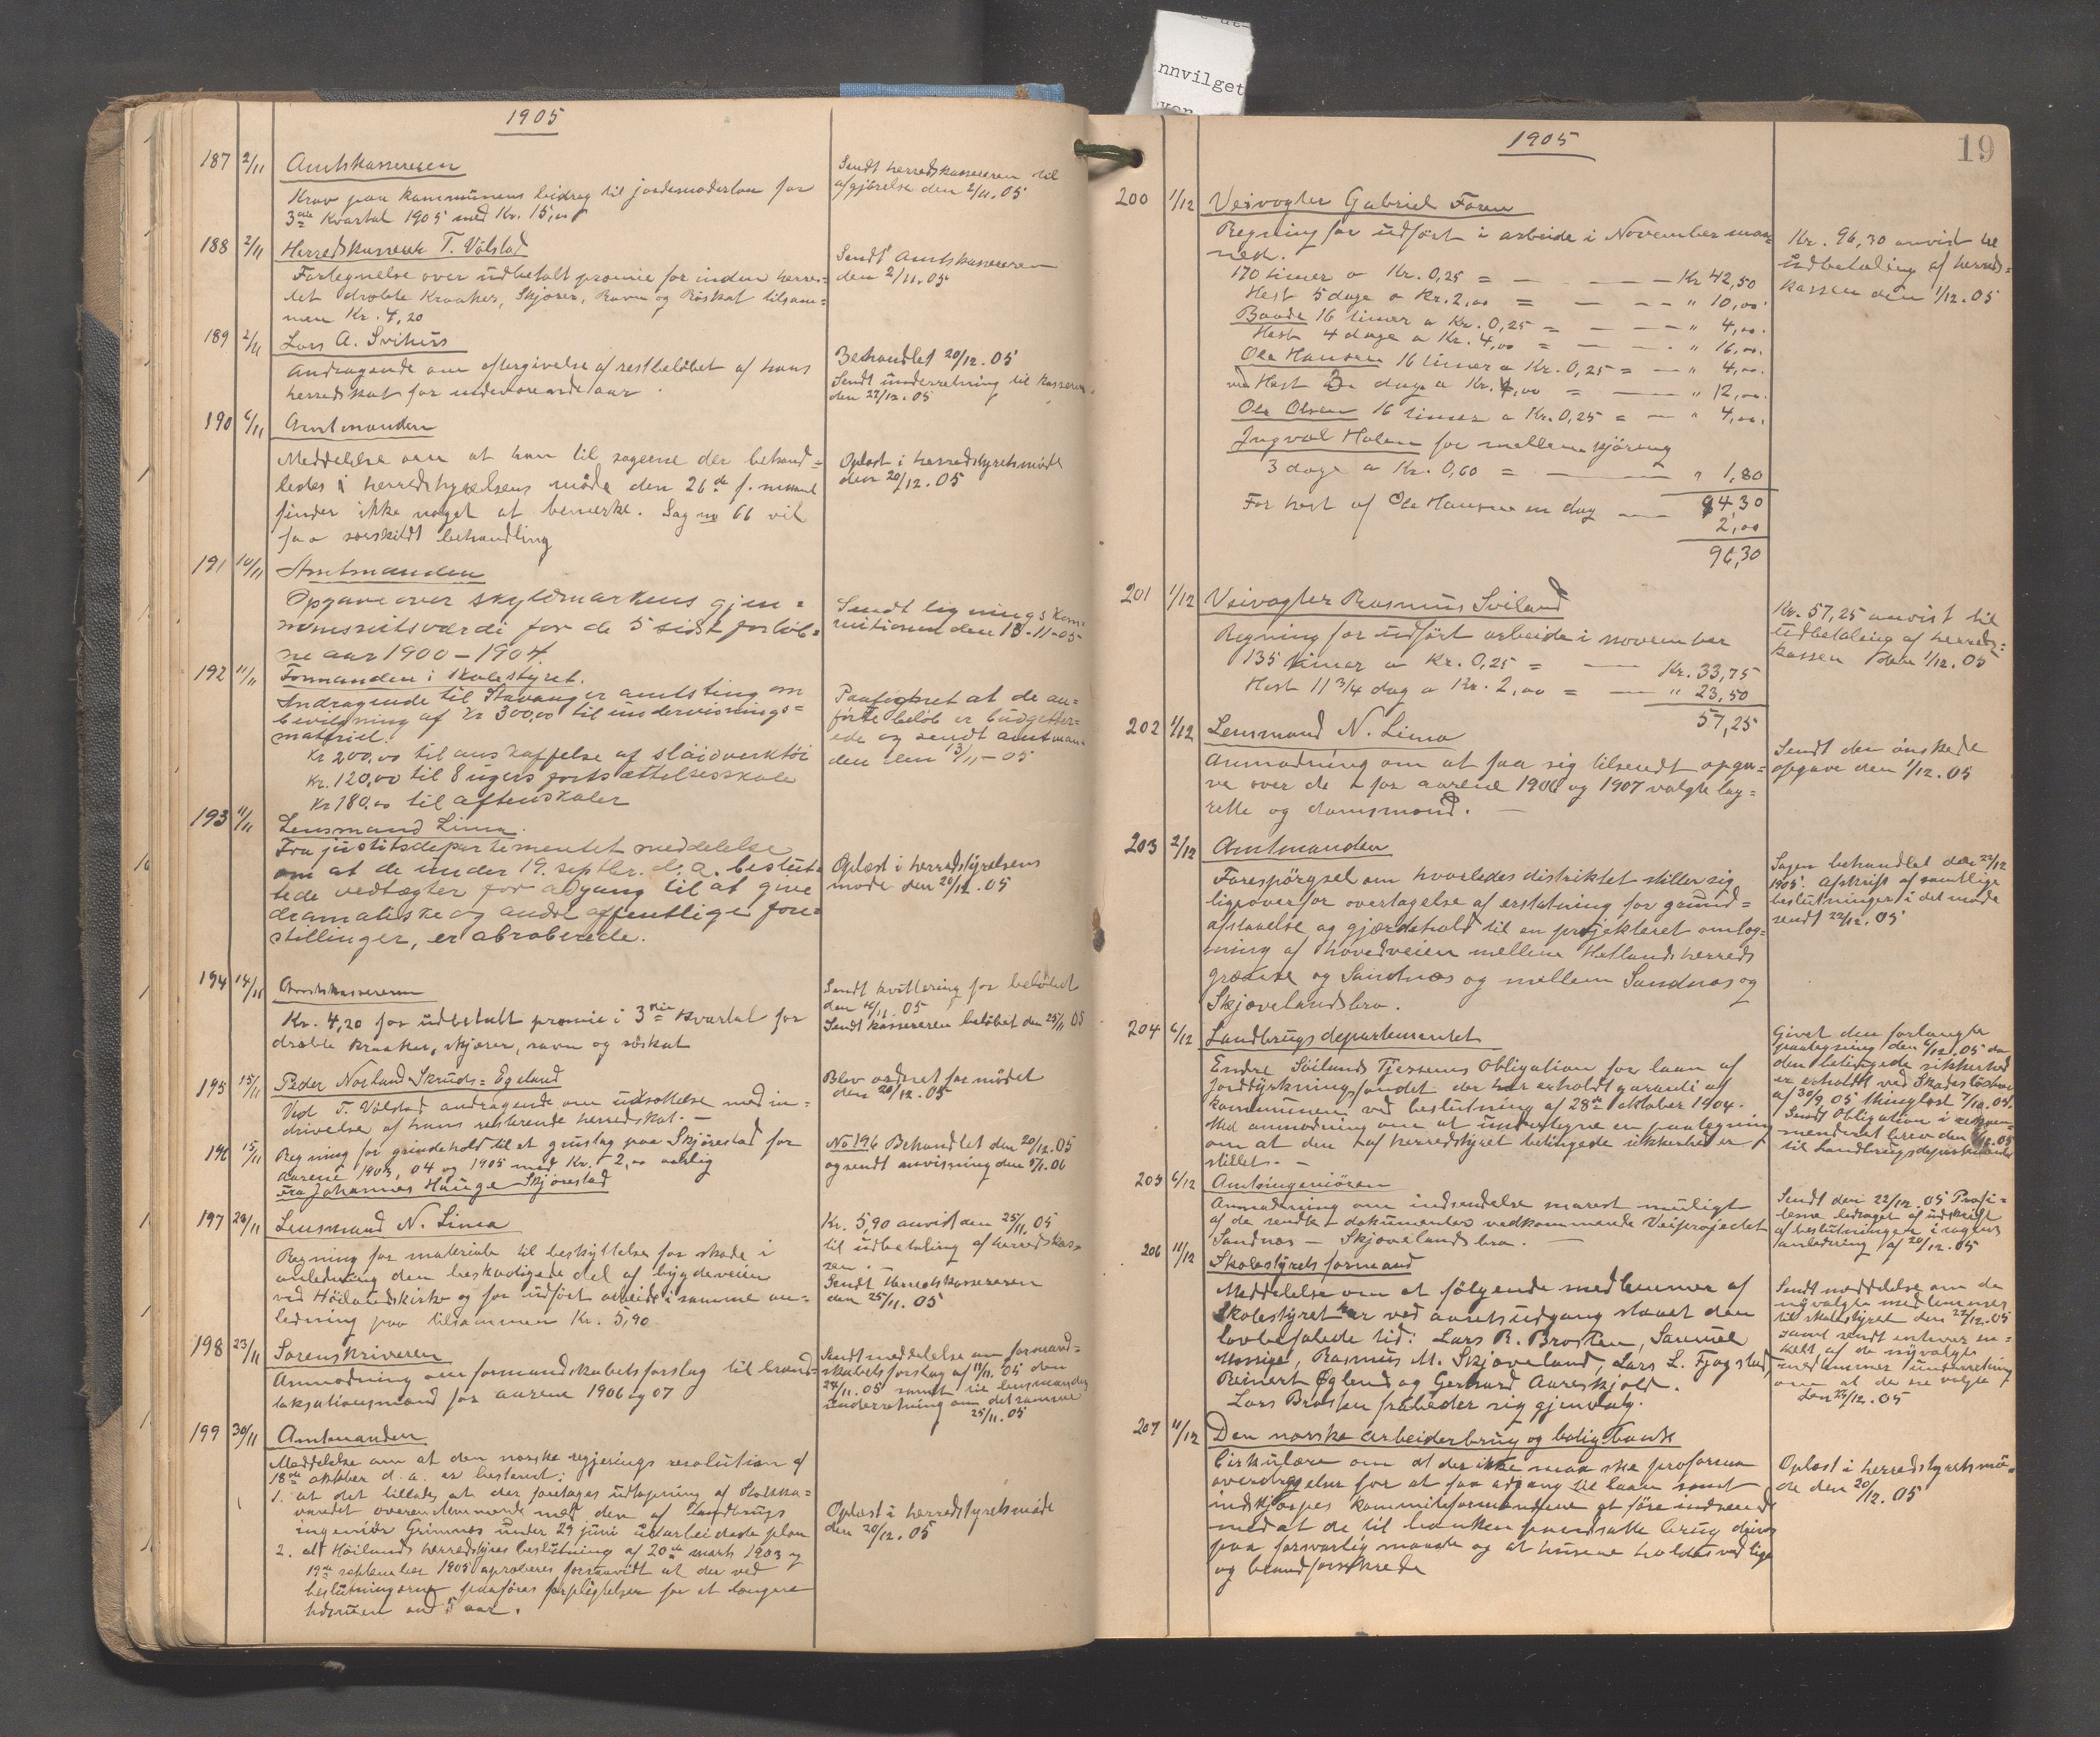 nnvilget
1905
187 2/11 Amtskassereren
Krav paa kommunens bidrag til jordemoderløn for
3die Kvartal 1905 med Kr. 15,00
Sendt herredskassereren til
afgjørelse den 2/11. 05
188 2/11 Herredskasserer T. Vølstad
Fortegnelse over udbetalt præmie for inden herre-
det dræbte Kraaker, Skjærer, Ravn og Røskat tilsam=
men Kr. 4,20
Sendt Amtskassereren
den 2/11. 05
189 2/11 Lars A. Svihus
Andragende om eftergivelse af restbeløbet af hans
herredskat for indeværende aar
Behandlet 20/12. 05
Sendt underretning til kassereren
den 22/12. 05
190 6/11 Amtmanden
Meddelelse om at han til sagerne der behand=
ledes i herredstyrelsens møde den 26de f. m.
finder ikke noget at bemerke. Sag no 66 vil
faa særskildt behandling
Oplæst i herredstyrets møde
den 20/12. 05
191 10/11 Amtmanden
Opgave over skyldmarkens gjen=
nemsnitsværdi for de 5 sidst forløb=
ne aar 1900 - 1904
Sendt ligningskom=
mitionen den 13-11-05
192 11/11 Formanden i skolestyret.
Andragende til Stavanger amtsting om
bevilgning af kr 300,00 til undervisnings=
materiel.
Kr 200,00 til anskaffelse af sløidverktøi
Kr. 120,00 til 8 ugers fortsættelsesskole
Kr 180,00 til aftenskoler
Paategnet at de an=
førte beløb er budgetter=
ede og sendt amtman=
den den 13/11 - 05
193 11/11 Lensmand Lima.
Fra justitsdepartementet meddelelse
om at de under 19. septbr. d. a. beslut=
tede vedtægter for adgang til at give
dramatiske og andre offentlige fore=
stillinger, er abroberede.
Oplæst i herredstyrelsens
møde den 20/12. 05
194 14/11 Amtskassereren
Kr. 4,20 for udbetalt præmie i 3die Kvartal for
dræbte kraaker, skjærer, ravn og røskat
Sendt kvittering for beløbet
den 16/11. 05
Sendt kassereren beløbet den 25/11 05
195 15/11 Peder Norland Skruds=Egeland
Ved T. Vølstad andragende om udsættelse med in=
drivelse af hans resterende herredskat. -
Blev ordnet før mødet
den 20/12. 05
196 15/11 Regning for grindehold til et grustag paa Skjørestad for
aarene 1903, 04 og 1905 med Kr. 2,00 aarlig
Fra Johannes Hauge Skjørestad
No 196 Behandlet den 20/12. 05
og sendt anvisning den 5/1. 06
197 24/11 Lensmand N. Lima
Regning for materiale til beskyttelse for skade i
anledning den beskadigede del af bygdeveien
ved Høilands kirke og for udført arbeide i samme an=
ledning paa tilsammen Kr. 5,90
Kr. 5,90 anvist den 25/11. 05
til udbetaling af herredskas=
sen. -
Sendt Herredskassereren
den 25/11. 05
198 23/11 Sorenskriveren
Anmodning om formandskabets forslag til brand=
taksationsmænd for aarene 1906 og 07
Sendt meddelelse om formand=
skabets forslag af 11/11. 05 den
24/11. 05 samt til lensmanden
underretning om det samme
25/11. 05
199 30/11 Amtmanden
Meddelelse om at den norske regjerings resolution af
18de oktober d. a. er bestemt:
1. at det tillades at der foretages udtapning af
vandet overensstemmende med den af landbrugs
ingeniør Grimnes under 29 juni udarbeidede plan
2. at Høilands herredstyres beslutning af 20de marts 1903 og
19de september 1905 aproberes forsaavidt at der ved
beslutningerne paaføres forpligtelser for et længere
tidsrum end 5 aar.
Oplæst i herredstyrets møde
den 20/12. 05
1905
19
200 1/12 Veivogter Gabriel Foren
Regning for udført i arbeide i November maa=
ned.
170 timer a Kr. 0,25 = — — — Kr 42,50
Hest 5 dage a Kr. 2,00 = — — — " 10,00.
Baade 16 timer a Kr. 0,25 = — — — " 4,00.
Hest 4 dage a Kr. 4,00 = — — " 16,00.
Ole Hansen 16 timer a Kr. 0,25 = — " 4,00.
ved Hest 3 dage a Kr. 4,00 = — " 12,00.
Ole Olsen 16 timer a Kr. 0,25 = — " 4,00.
Ingval Holen for mellem kjøring
3 dage a Kr. 0,60 = — — " 1,80
94,30
For hest af Ole Hansen en dag — 2,00
96,30
Kr. 96,30 anvist til
udbetaling af herreds=
kassen den 1/12. 05
201 1/12 Veivogter Rasmus Sviland
Regning for udført arbeide i november
135 timer a Kr. 0,25 = — Kr. 33,75
Hest 11 3/4 dag a Kr. 2,00 = — " 23,50
57,25
Kr. 57,25 anvist til
udbetaling af herreds=
kassen den 1/12. 05
202 1/12 Lensmand N. Lima
Anmodning om at faa sig tilsendt opga=
ve over de for aarene 1906 og 1907 valgte lag=
rette og domsmænd. —
Sendt den ønskede
opgave den 1/12. 05
203 2/12 Amtmanden
Forespørgsel om hvorledes distriktet stiller sig
ligeoverfor overtagelse af erstatning for grund=
afstaaelse og gjærdehold til en projekteret omlæg=
ning af hovedveien mellem Hetlands herreds
grænse og Sandnæs og mellem Sandnæs og
Skjævelandsbro.
Sagen behandlet den 22/12
1905. Afskrift af samtlige
beslutninger i det møde
sendt 22/12. 05
204 6/12 Landbrugsdepartementet
Endre Sviland Tjessems Obligation for laan af
Jorddyrkningsfondet der har erholdt garanti af
kommunen ved beslutning af 28de oktober 1904.
Med anmodning om at undertegne en paategning
om at den af herredstyret betingede sikkerhed er
stillet. -
Givet den forlangte
paategning den 6/12. 05 da
den betingede sikkerhed
er erholdt ved Skadesløsbrev
af 30/9 05 thinglæst 7/10. 05.
Sendt Obligation i rekom=
menderet brev den 9/12. 05
til Landbrugsdepartementet
205 6/12 Amtsingeniøren
Anmodning om indsendelse snarest muligt
af de sendte dokumenter vedkommende Veiprojektet
Sandnæs - Skjævelandsbro. —
Sendt den 22/12. 05
af beslutningen i sagens
anledning af 20/12. 05
206 11/12 Skolestyrets formand
Meddelelse om at følgende medlemmer af
Skolestyret har ved aarets udgang staaet den
lovbefalede tid: Lars R. Brosten, Samuel
Mossige, Rasmus M. Skjæveland, Lars L. Fjogstad,
Reinert Øglend og Gerhard Aareskjold.
Lars Brosten frabeder sig gjenvalg.
Sendt meddelelse om de
nyvalgte medlemmer
til skolestyret den 22/12. 05
samt sendt enhver en=
kelt af de nyvalgte
medlemmer underretning
om at de ere valgte
den 22/12. 05
207 11/12 Den norske arbeiderbrug og boligbank
Cirkulære om at der ikke maa ske proforma
overdragelser for at faa adgang til laan samt
indskjærpes kommiteformændene at føre indseende
med at de til banken pandsatte brug drives
paa forsvarlig maade og at husene holdes vedlige
og brandforsikrede
Oplæst i herredstyrets mø=
de den 20/12. 05